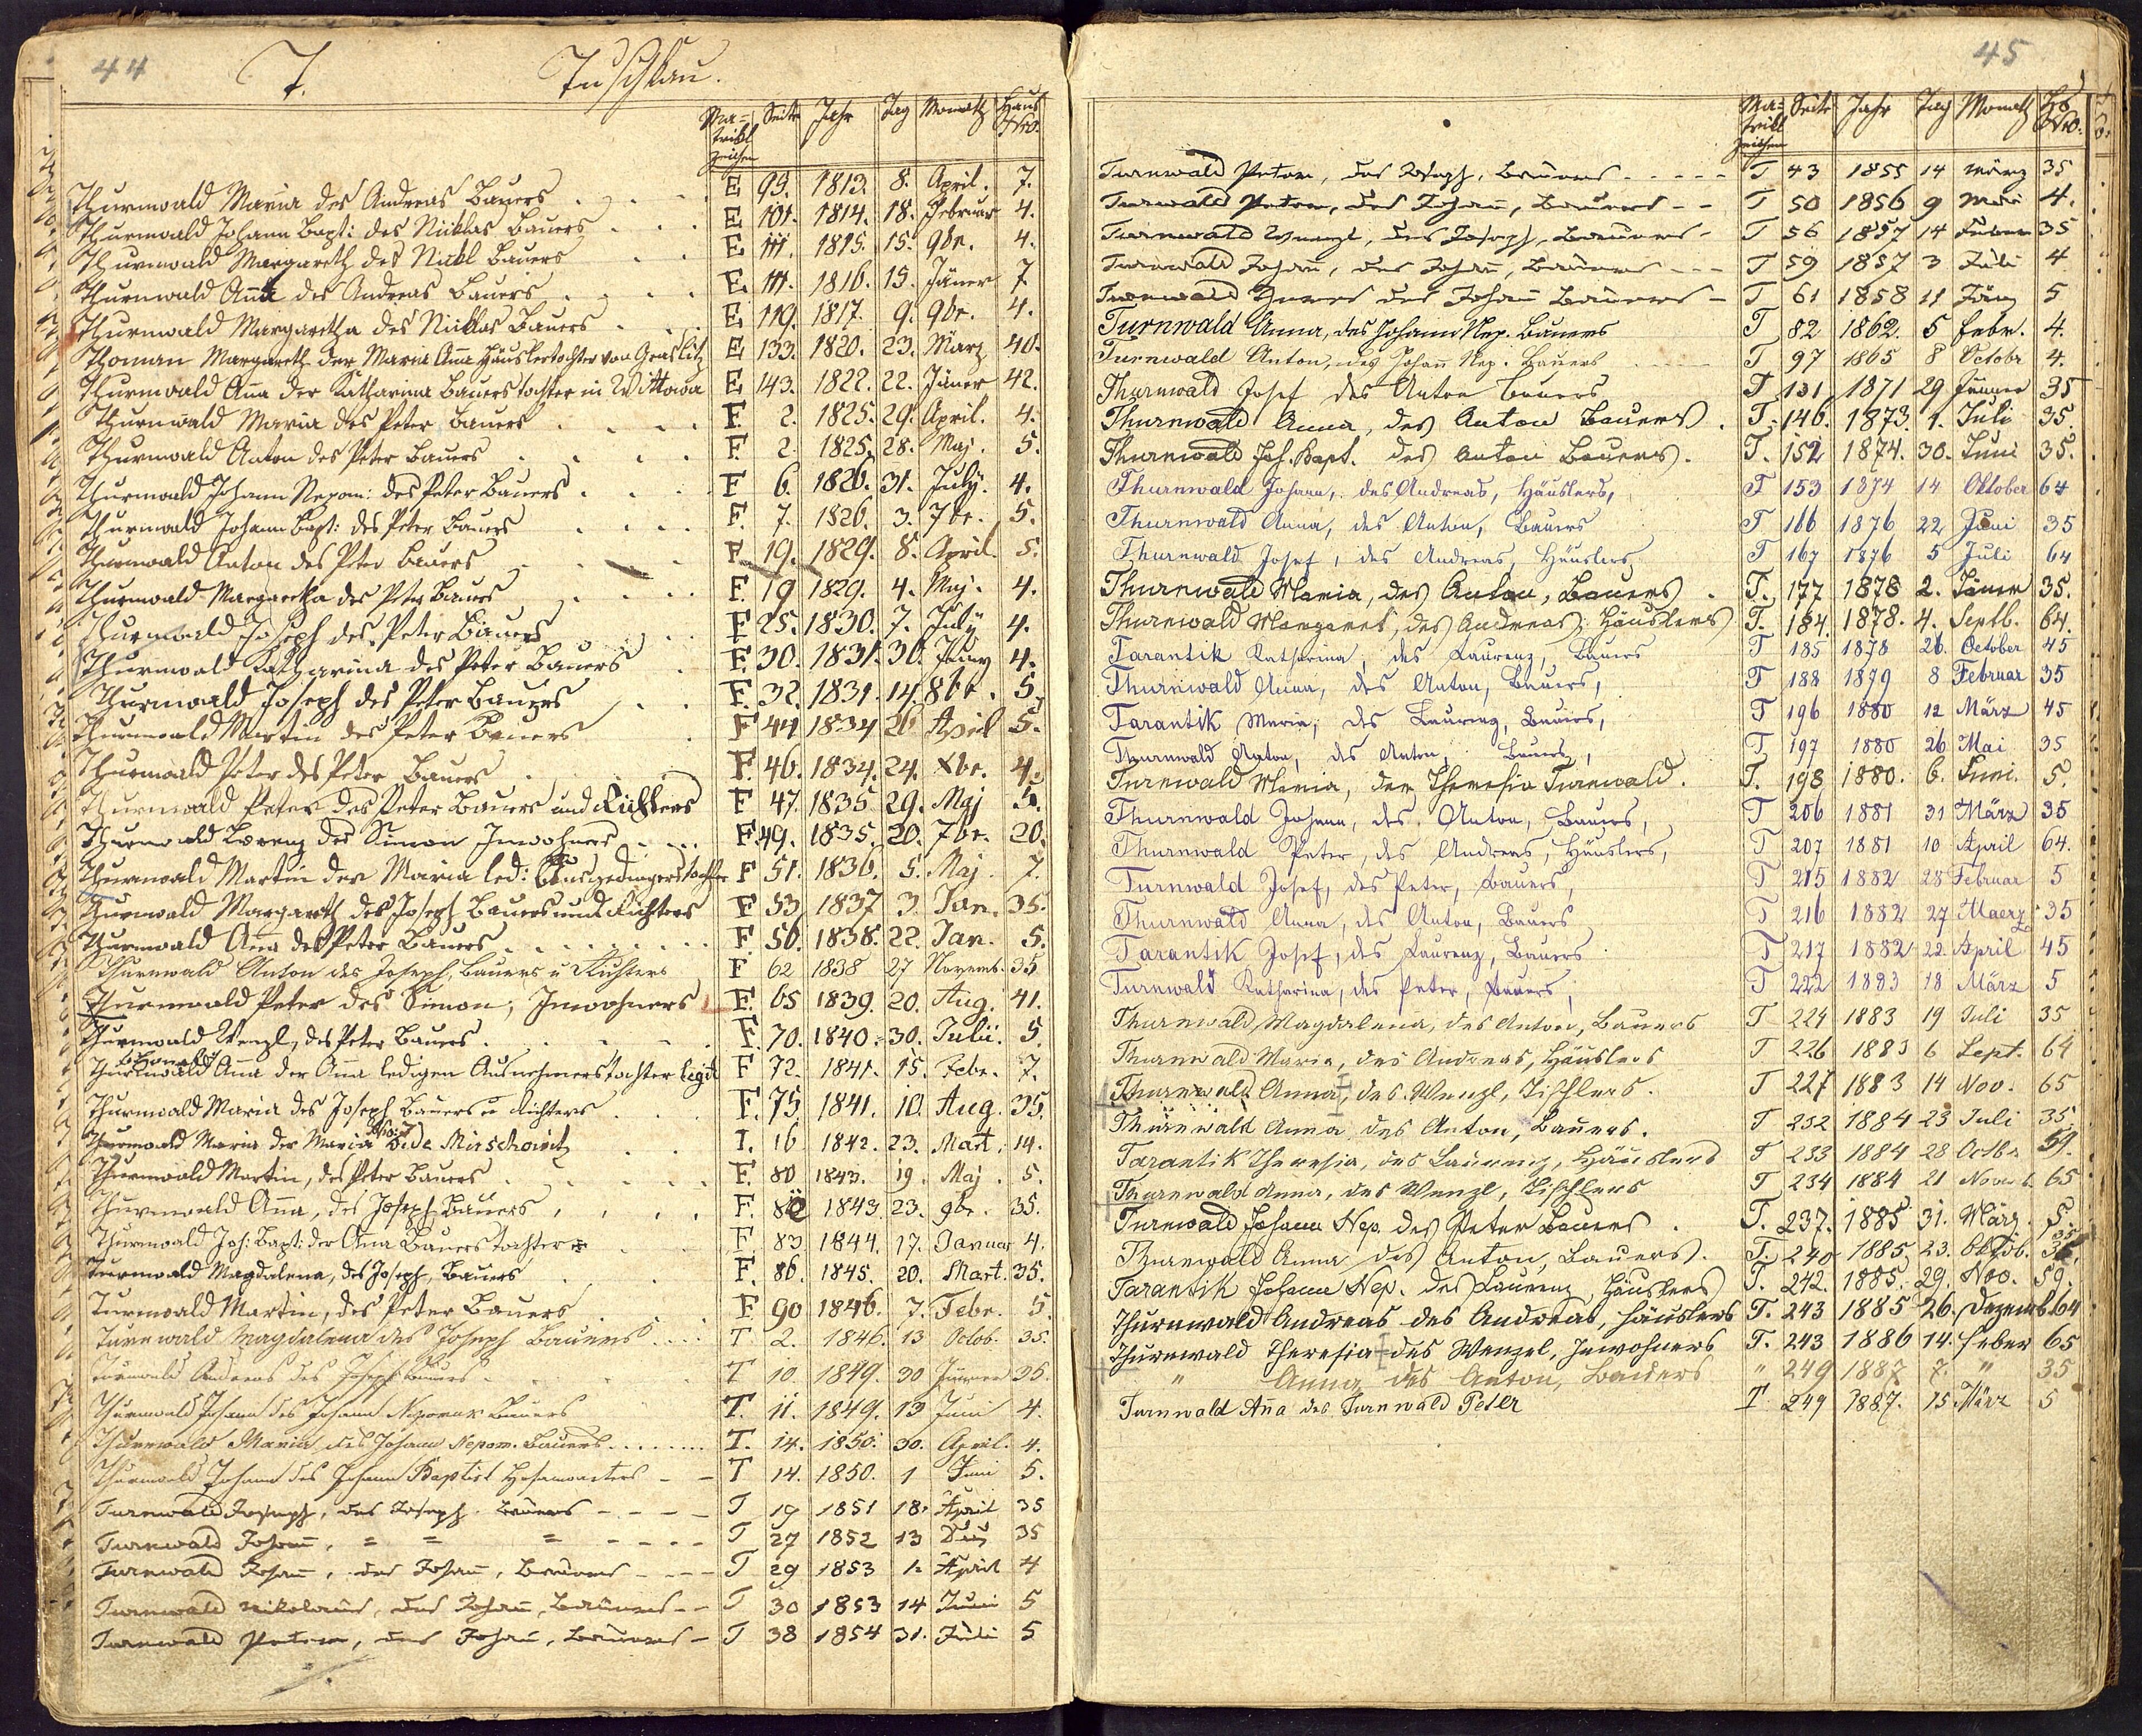 44
T.
Tuschkau.
Ma=trikl zeichen Seite Jahr Tag Monath Haus Nro.
Thurnwald Maria des Andreas Bauers E 99. 1813. 8. April. 7.
Thurnwald Johann Bapt: des Niklas Bauers E 101. 1814. 18. Februar 4.
Thurnwald Margareth des Nikl Bauers E 111. 1815. 15. 9br. 4.
Thurnwald Anna des Andreas Bauers E 111. 1816. 15. Jäner 7
Thurnwald Margaretha des Niklas Bauers E 119. 1817. 9. 9br. 4.
Thoman Margareth der Maria Anna Häuslertochter von Graslitz E 133. 1820. 23. März 40.
Thurnwald Anna der Katharina Bauerstochter in Wittowa E 143. 1822. 22. Jäner 42.
Thurnwald Maria des Peter Bauers F. 2. 1825. 29. April. 4.
Thurnwald Anton des Peter Bauers F. 2. 1825. 28. Maj. 5.
Thurnwald Johann Nepom: des Peter Bauers F 6. 1826. 31. July. 4.
Thurnwald Johann Bapt: des Peter Bauers F. 7. 1826. 3. 7br. 5.
Thurnwald Anton des Peter Bauers F. 19. 1829. 8. April. 5.
Thurnwald Margaretha des Peter Bauers F. 19 1829. 4. Maj. 4.
Thurnwald Joseph des Peter Bauers F 25. 1830. 7. July 4.
Thurnwald Katharina des Peter Bauers F. 30. 1831. 30. 4.
Thurnwald Joseph des Peter Bauers F. 32. 1831. 14. 8br. 5.
Thurnwald Martin des Peter Bauers F 44 1834 26 April 5.
Thurnwald Peter des Peter Bauers F. 46. 1834. 24. Xbr. 4.
Thurnwald Peter des Peter Bauers und Richters F 47. 1835 29. Maj 5.
Thurnwald Lorenz des Simon Inwohners F. 49. 1835. 20. 7br. 20.
Thurnwald Martin der Maria led: Ausgedingerstochter F 51. 1836. 5. Maj. 7.
Thurnwald Margareth des Joseph Bauers und Richters F 53 1837 3. Jan. 35.
Thurnwald Anna des Peter Bauers F 56. 1838. 22. Jan. 5.
Thurnwald Anton des Joseph, Bauers u Richters F 62 1838 27 Novemb. 35
Thurnwald Peter des Simon, Inwohners F. 65 1839. 20. Aug. 41.
Thurnwald Wenzl, des Peter Bauers F. 70. 1840. 30. Julii. 5.
Thurnwald Anna der Anna ledigen Ausnehmerstochter legit F 72. 1841. 15. Febr. 7.
Thurnwald Maria des Joseph Bauers u Richters F. 75. 1841. 10. Aug. 35.
Thurnwald Maria der Maria No: 7 Vide Mirschowitz I. 16 1842. 23. Mart. 14.
Thurnwald Martin, des Peter Bauers F. 80 1843. 19. Maj. 5.
Thurnwald Anna, des Joseph Bauers F. 82 1843 23. 9br. 35.
Thurnwald Joh: Bapt: der Anna Bauerstochter F. 83 1844. 17. Januar 4.
Turnwald Magdalena, des Joseph, Bauers F. 86. 1845. 20. Mart. 35.
Turnwald Martin, des Peter Bauers F. 90 1846. 7. Febr. 5
Turnwald Magdalena des Joseph Bauers T 2. 1846. 13 Octob. 35.
Turnwald Andreas des Joseph Bauers T 10. 1849. 30 Jänner 35.
Thurnwald Johann des Johann Nepomuk Bauers T. 11. 1849. 13 Juni 4.
Thurnwald Maria, des Johann Nepom. Bauers T. 14. 1850. 30. April. 4.
Thurnwald Johann des Johann Baptist T 14. 1850. 1 Juni 5.
Turnwald Joseph, des Joseph Bauers T 19 1851 18. April 35
Turnwald Johann, = = = T 27 1852 13 35
Turnwald Johann, des Johann, Bauers T 29 1853 1. April 4
Turnwald Nikolaus, des Johann, Bauers T 30 1853 14 Juni 5
Turnwald Peter, des Johann, Bauers T 38 1854 31. Juli 5
45
Ma=trikl zeichen Seite Jahr Tag Monath Hs Nro.
Turnwald Peter, des Joseph, Bauers T 43 1855 14 März 35
Turnwald Peter, des Johann, Bauers T 50 1856 9 Mai 4.
Turnwald Wenzl, des Joseph, Bauers T 56 1857 14 35
Turnwald Johann, des Johann, Bauers T 59 1857 3 Juli 4
Turnwald des Johann Bauers T 61 1858 11 5
Turnwald Anna, des Johann Nep. Bauers T 82 1862. 5 Febr. 4.
Turnwald Anton, des Johann Nep. Bauers T 97 1865 8 Octobr 4.
Thurnwald Josef des Anton Bauers T 131 1871 29 Jänner 35
Thurnwald Anna, des Anton Bauers T. 146. 1873. 1. Juli 35.
Thurnwald Joh. Bapt. des Anton Bauers. T. 152 1874. 30. Juni 35.
Thurnwald Johann, des Andreas, Häuslers, T 153 1874 14 Oktober 64
Thurnwald Anna, des Anton, Bauers T 166 1876 22 Juni 35
Thurnwald Josef, des Andreas, Häuslers T 167 1876 5 Juli 64
Thurnwald Maria, des Anton, Bauers T. 177 1878 2. Jäner 35.
Thurnwald Margaret, des Andreas, Häuslers T. 184. 1878. 4. Septb. 64.
Tarantik Katharina, des Laurenz, Bauers T 185 1878 26. October 45
Thurnwald Anna, des Anton, Bauers, T 188 1879 8 Februar 35
Tarantik Maria, des Laurenz, Bauers, T 196 1880 12 März 45
Thurnwald Anton, des Anton, Bauers, T 197 1880 26 Mai 35
Turnwald Maria, der Theresia Turnwald. T. 198 1880. 6. Juni. 5.
Thurnwald Johann, des Anton, Bauers, T 206 1881 31 März 35
Thurnwald Peter, des Andreas, Häuslers, T 207 1881 10 April 64.
Turnwald Josef, des Peter, Bauers, T 215 1882 28 Februar 5
Thurnwald Anna, des Anton, Bauers T 216 1882 27 Maerz 35
Tarantik Josef, des Laurenz, Bauers T 217 1882 22 April 45
Turnwald Katharina, des Peter, Bauers, T 222 1883 18 März 5
Thurnwald Magdalena, des Anton, Bauers T 224 1883 19 Juli 35
Thurnwald Maria, des Andreas, Häuslers T 226 1883 6 Sept. 64
Thurnwald Anna, des Wenzl, Tischlers. T 227 1883 14 Nov. 65
Thurnwald Anna des Anton, Bauers. T 232 1884 23 Juli 35.
Tarantik Theresia, des Laurenz, Häuslers T 233 1884 28 Octbr 59.
Thurnwald Anna, des Wenzl, Tischlers T 234 1884 21 Novemb. 65
Turnwald Johann Nep. des Peter Bauers. T. 237. 1885 31. März. 5.
Thurnwald Anna des Anton, Bauers. T. 240 1885. 23. Oktob. 35
Tarantik Johann Nep. des Laurenz, Häuslers T. 242. 1885. 29. Nov. 59.
Thurnwald Andreas des Andreas, Häuslers T. 243 1885 26. Dezemb. 64
Thurnwald Theresia des Wenzel, Inwohners T. 243 1886 14. Feber 65
" Anna des Anton, Bauers " 249 1887 7. " 35
Turnwald Anna des Turnwald Peter T 249 1887. 15. März 5